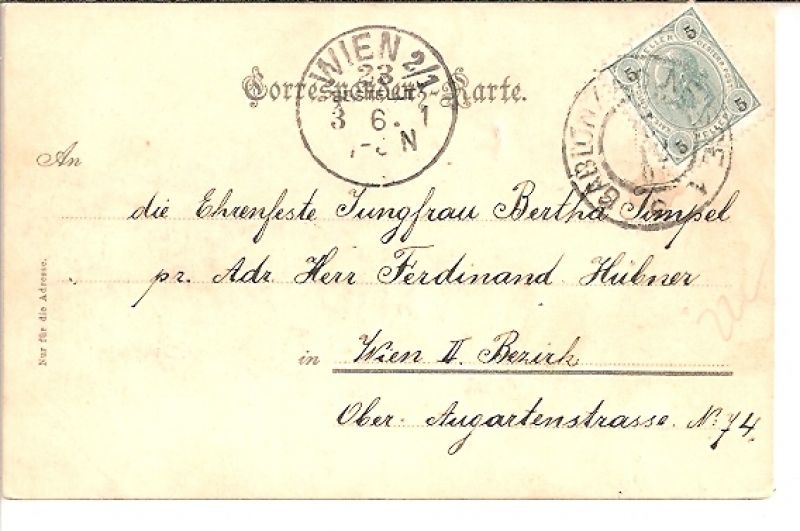 Correspondenz-Karte.
WIEN 2/1
23
BESTELLT
3 6. 1
N
5 5 5 5
HELLER HELLER
GABLONZ
An
die Ehrenfeste Jungfrau Bertha Simpel
pr. Adr. Herr Ferdinand Hübner
in Wien II. Bezirk
Ober. Augartenstrasse. No: 74.
Nur für die Adresse.